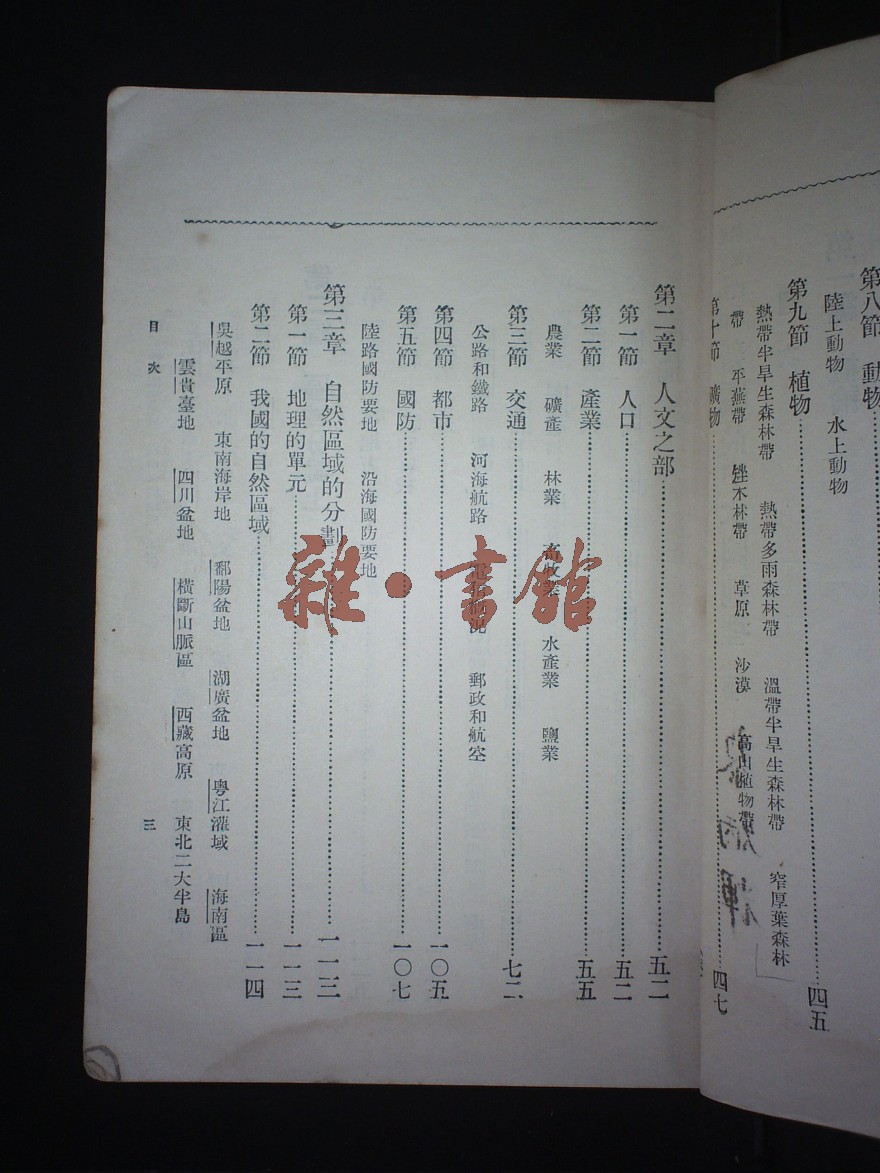 第八節 動物
陸上動物 水上動物
第九節 植物……四五
熱帶半旱生森林帶 熱帶多雨森林帶 溫帶半旱生森林帶 窄厚葉森林
帶 平蕪帶 矬木林帶 草原 沙漠 高山植物帶
第十節 礦物……四七
第二章 人文之部……五二
第一節 人口……五二
第二節 產業……五五
農業 礦產 林業 畜牧業 水產業 鹽業
第三節 交通……七二
公路和鐵路 河海航路 郵政和航空
第四節 都市……一〇五
第五節 國防……一〇七
陸路國防要地 沿海國防要地
第三章 自然區域的分劃……一一三
第一節 地理的單元……一一三
第二節 我國的自然區域……一一四
吳越平原 東南海岸地 鄱陽盆地 湖廣盆地 粵江灌域 海南區
雲貴臺地 四川盆地 橫斷山脈區 西藏高原 東北二大半島
目次 三
雜·書館